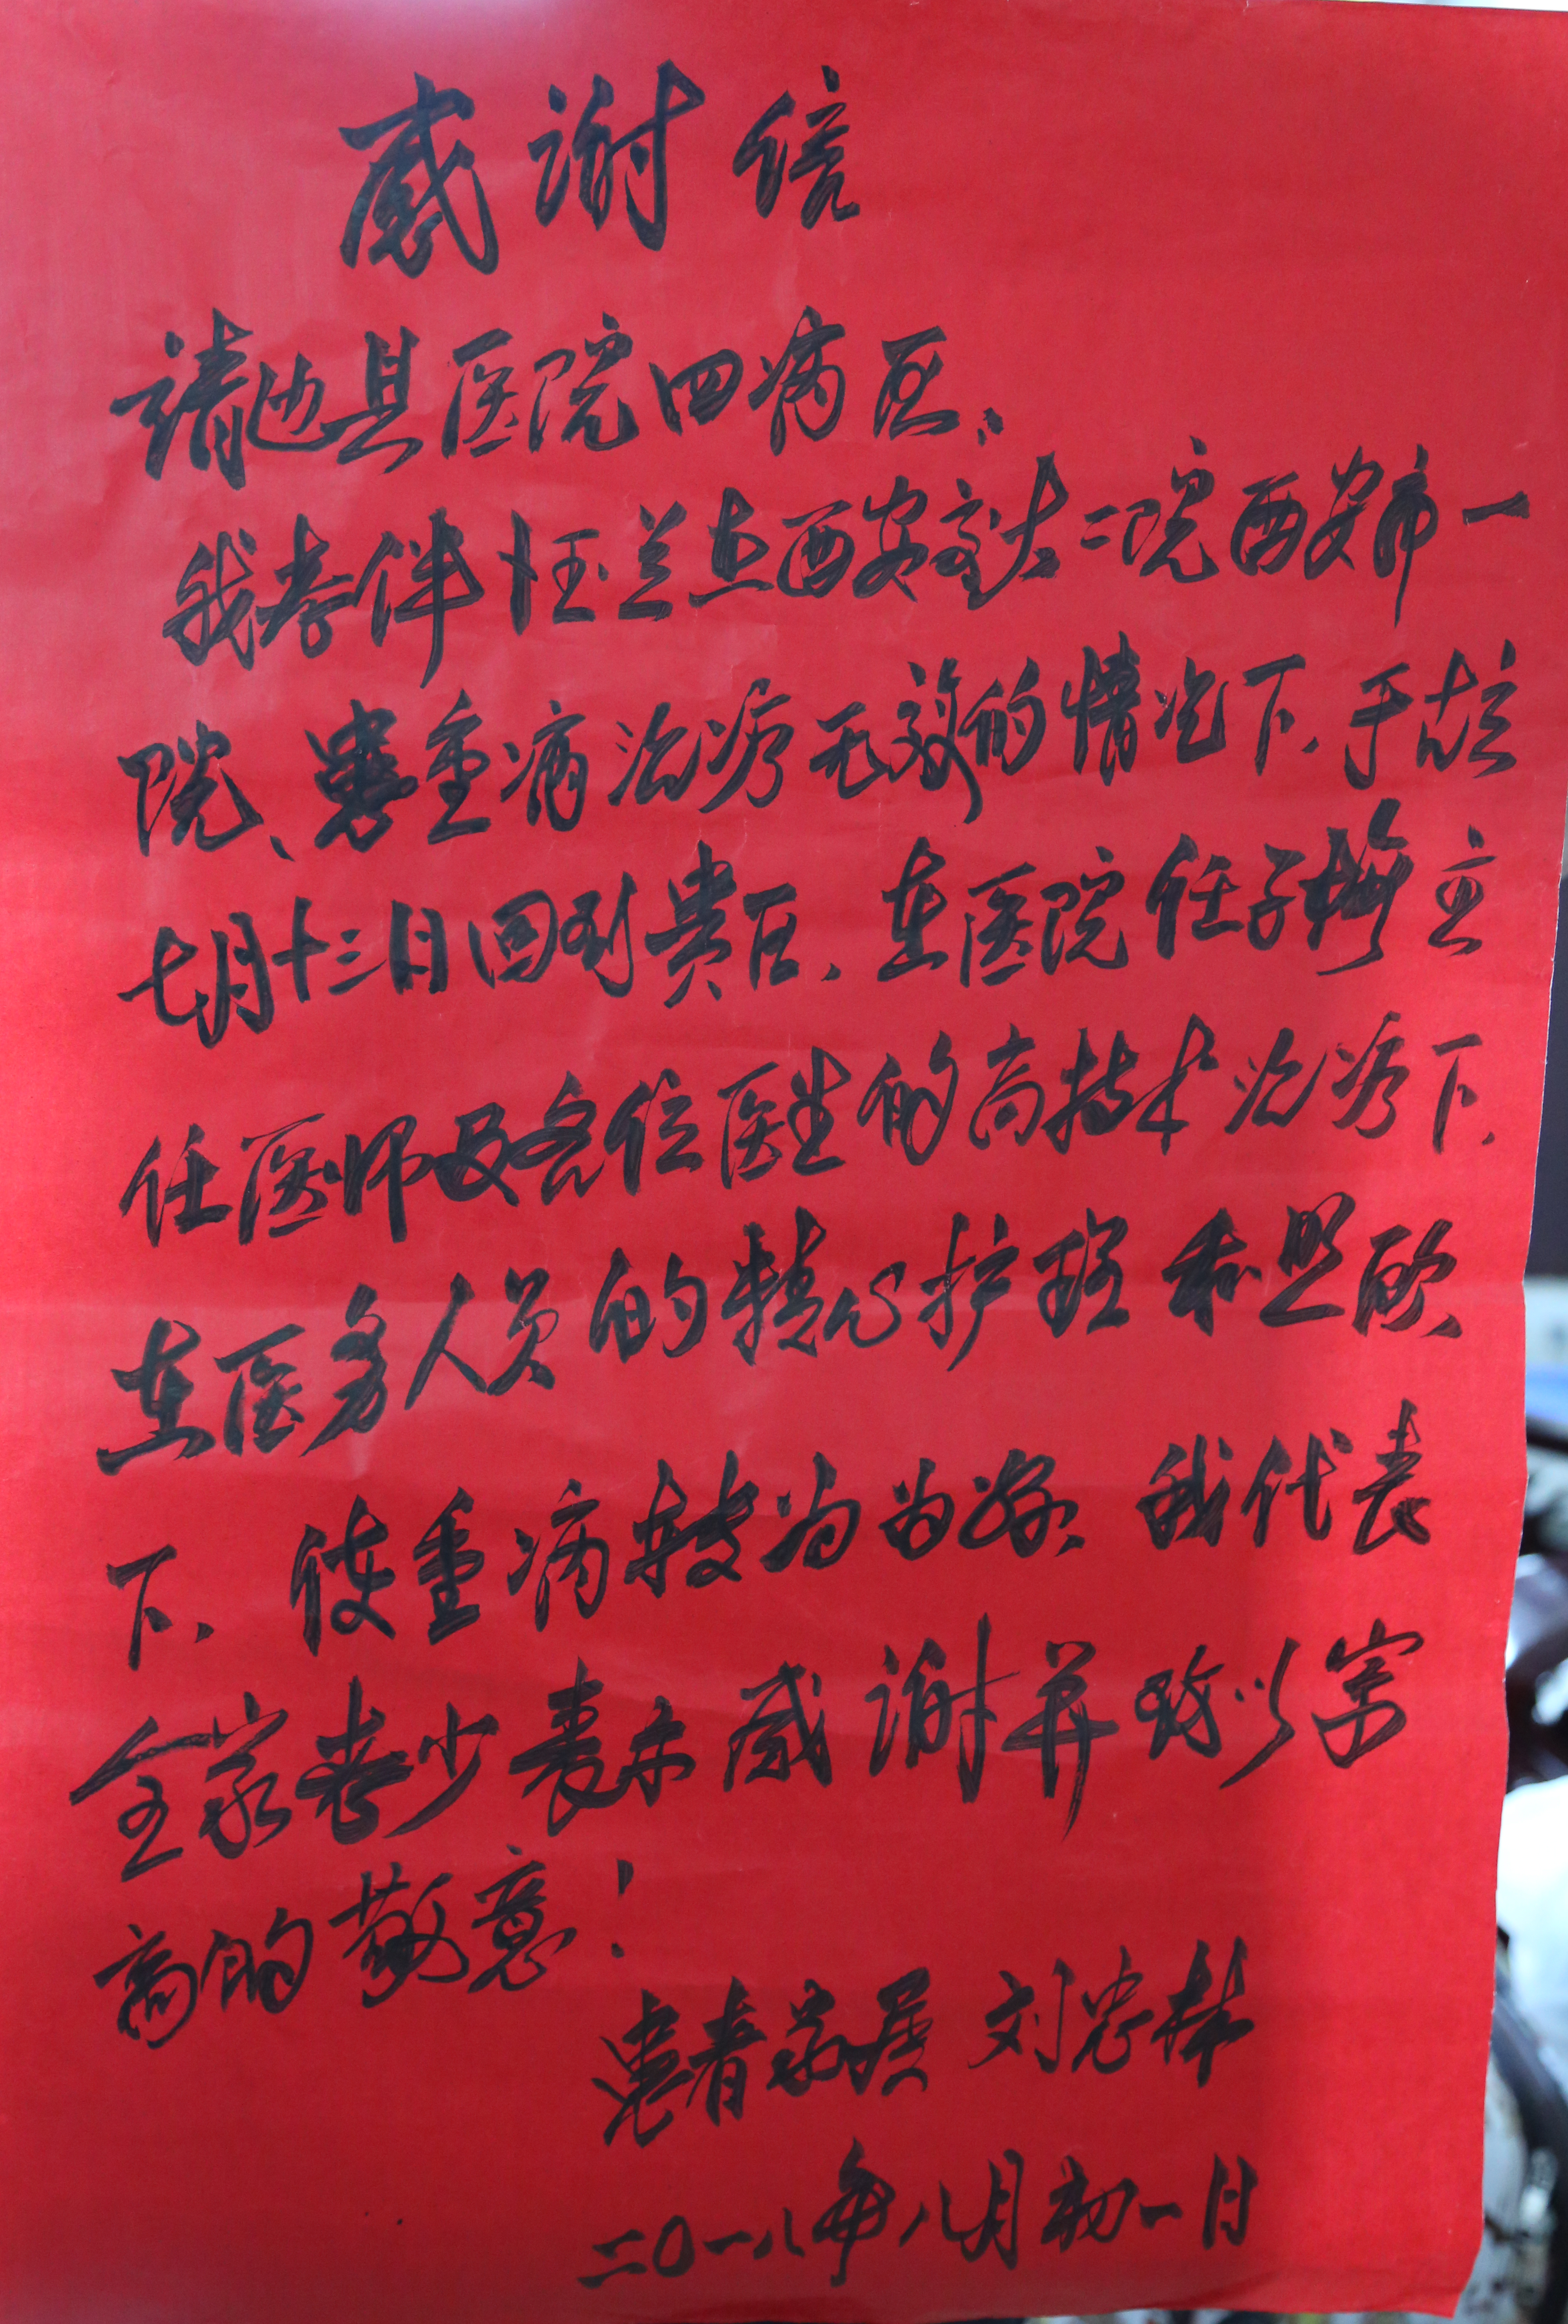 感谢信
靖边县医院四病区、
我老伴任玉兰在西安交大二院西安市一
院、患重病治疗无效的情况下、于农
七月十三日回到贵区、在医院任子梅主
任医师及各位医生的高技术治疗下、
在医务人员的精心护理和照顾
下、使重病转为为好、我代表
全家老少表示感谢并致以崇
高的敬意！
患者家属 刘忠林
二〇一八年八月初一日